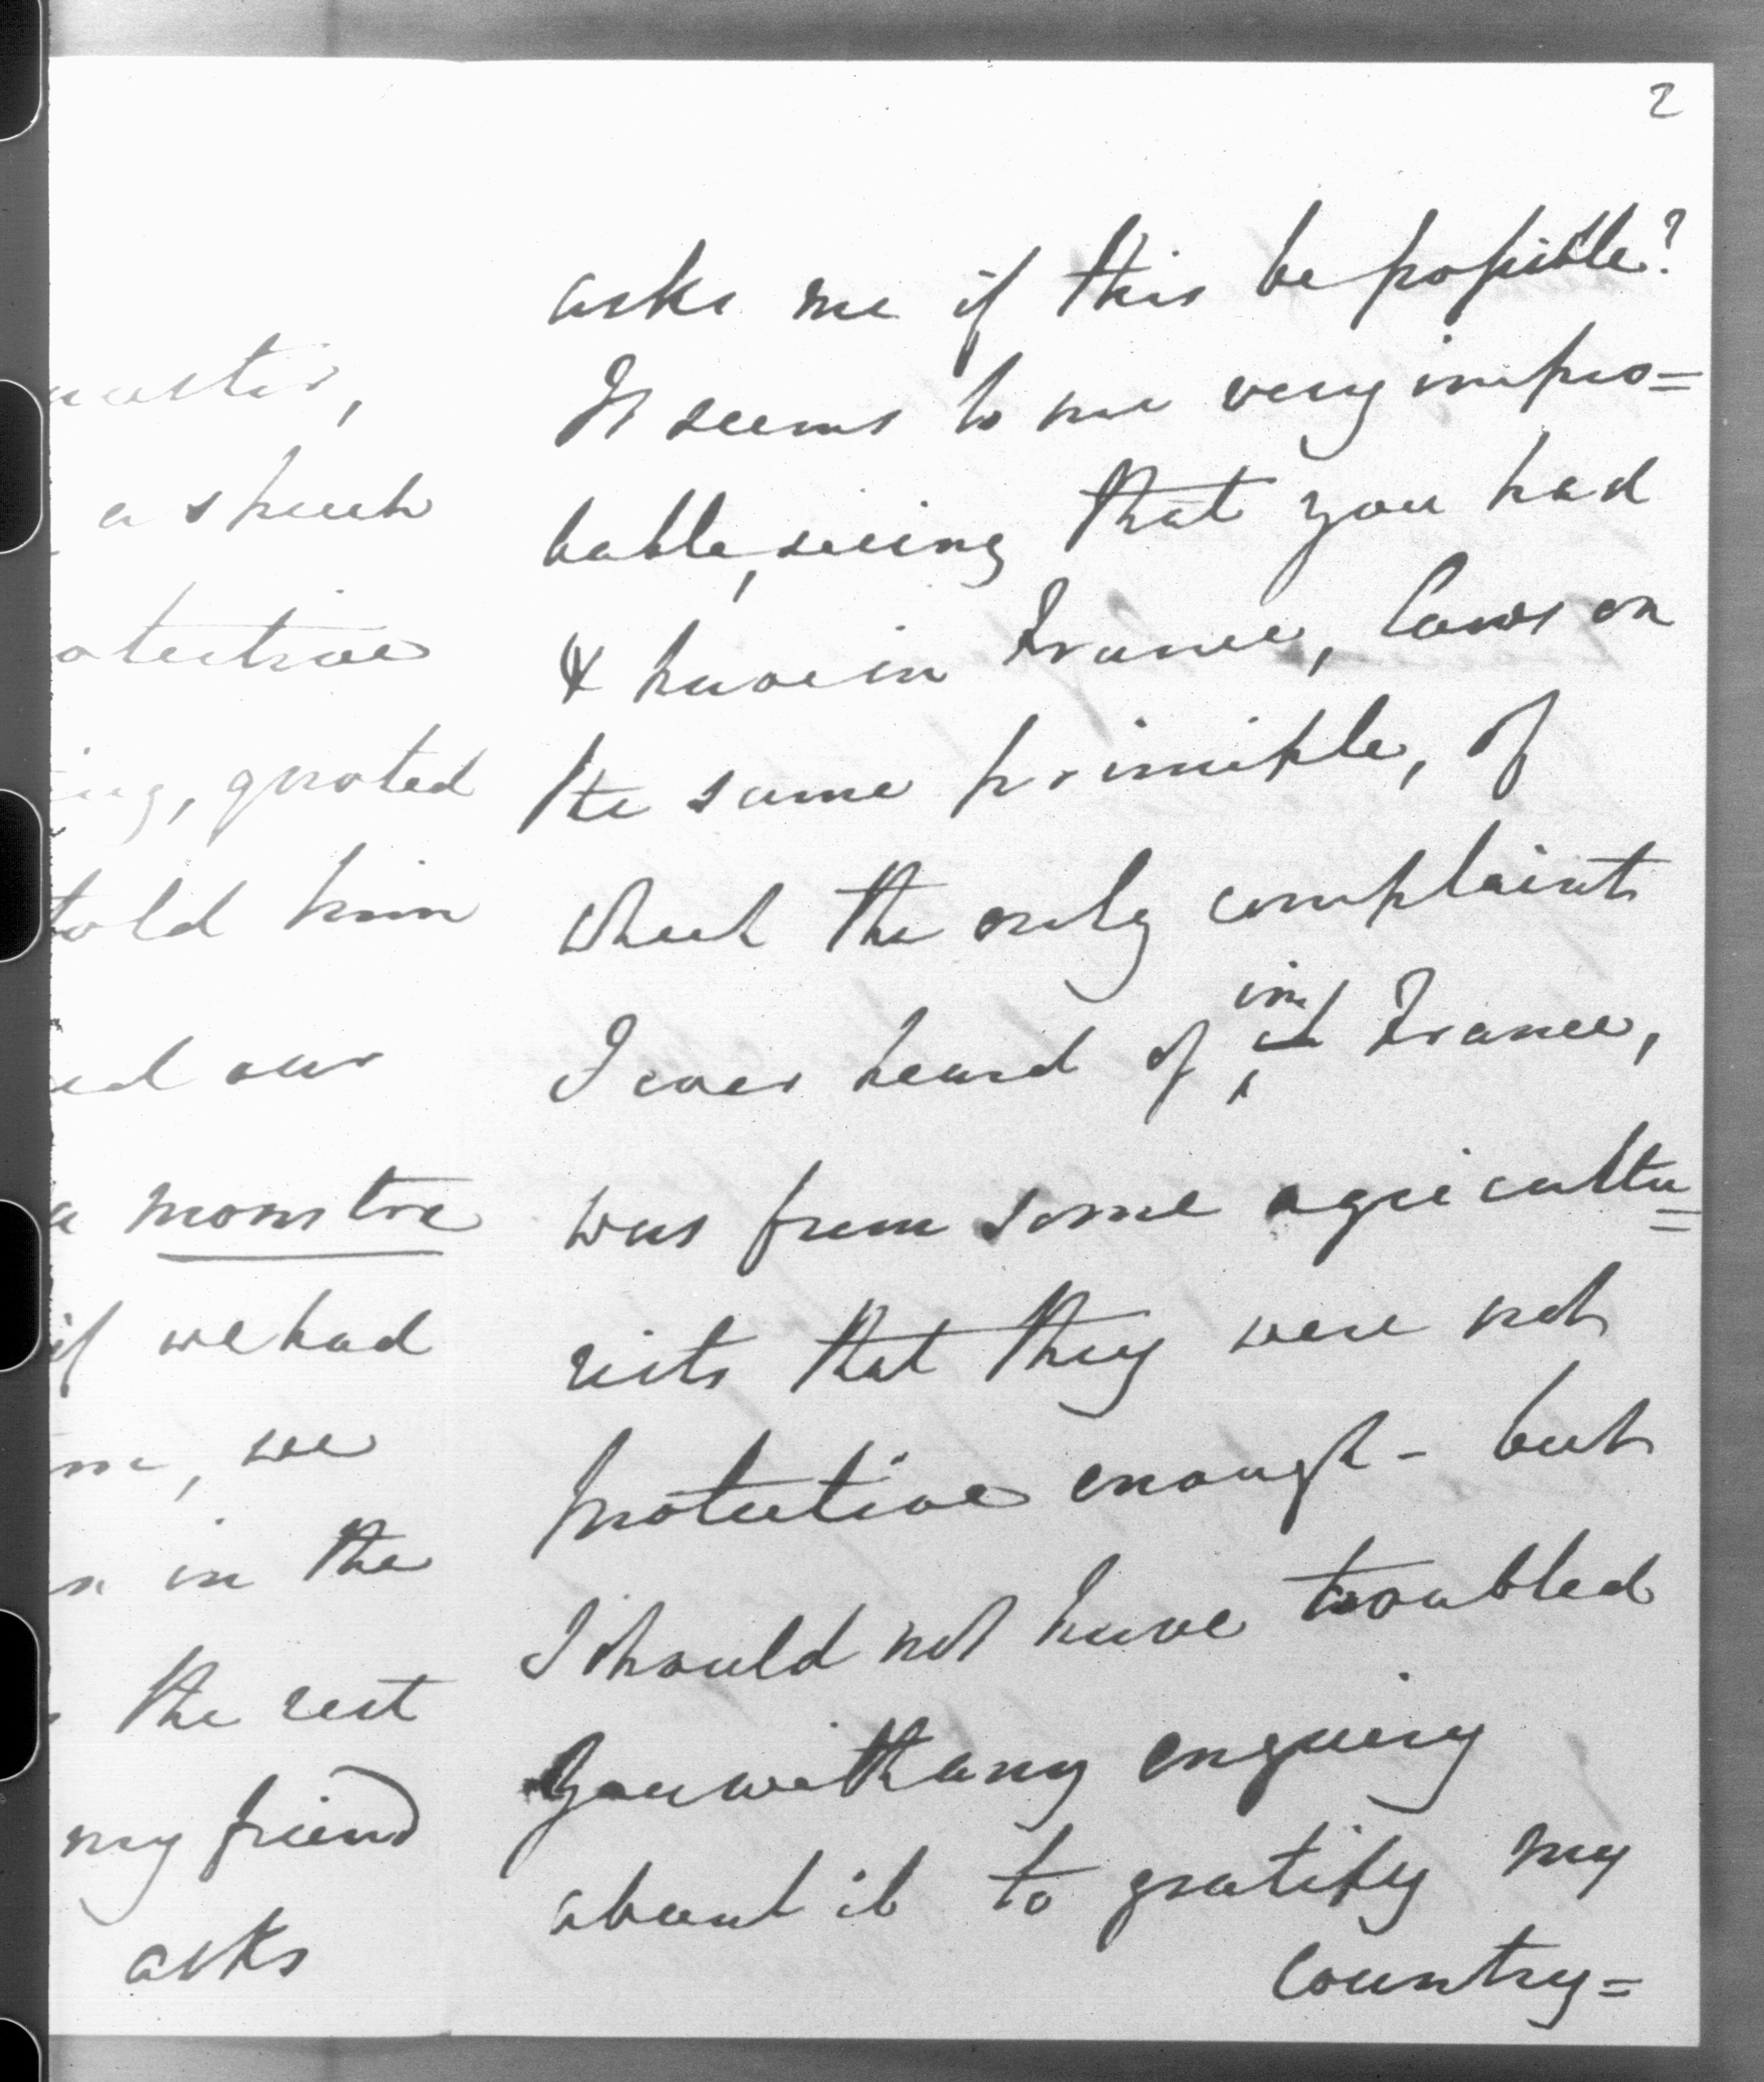 2
asks me if this be possible?
It seems to me very impro=
bable, seeing that you had
& have in France, laws on
the same principle, of
which the only complaint
I ever heard of in France,
was from some agricultu=
rists that they were not
protective enough - but
I should not have troubled
you with any enquiry
about it to gratify my
country=
a speech
otective
ing, quoted
told him
ed our
a monstre
if we had
me, we
n in the
the rest
my friend
asks